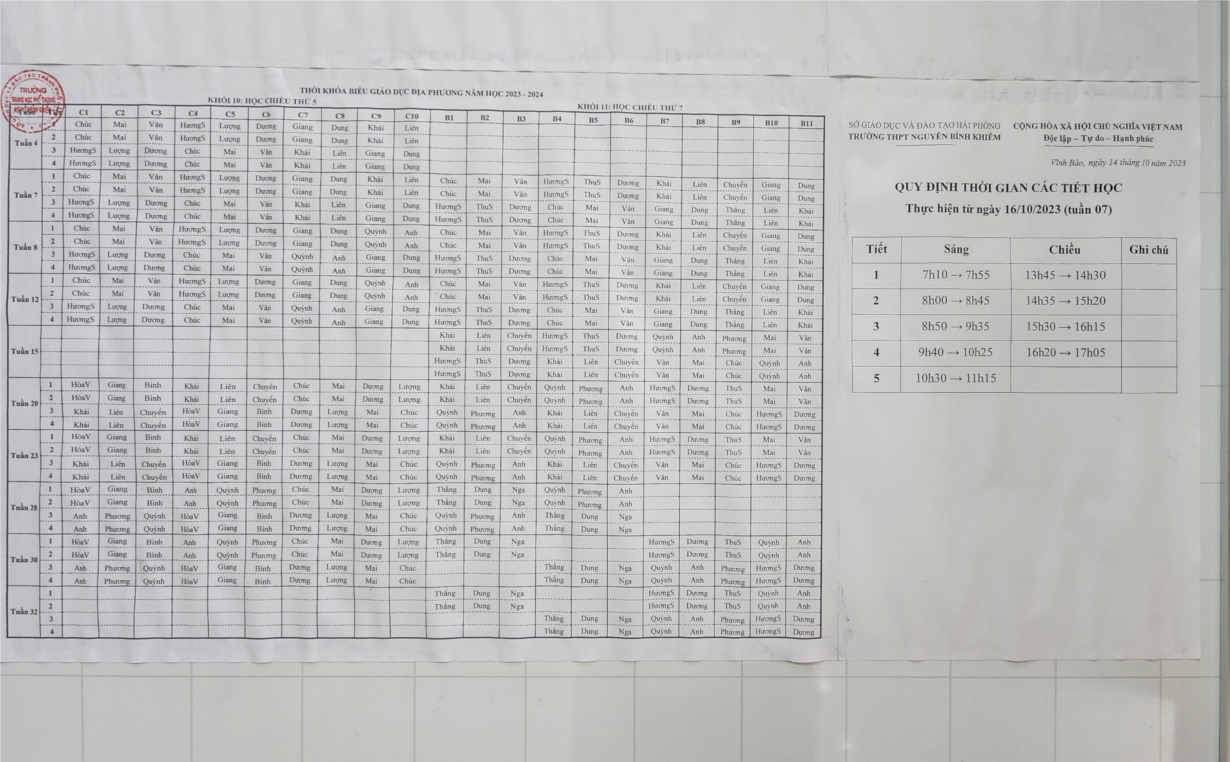 THỜI KHÓA BIỂU GIÁO DỤC ĐỊA PHƯƠNG NĂM HỌC 2023 - 2024
KHỐI 10: HỌC CHIỀU THỨ 5 KHỐI 11: HỌC CHIỀU THỨ 7
C1 C2 C3 C4 C5 C6 C7 C8 C9 C10 B1 B2 B3 B4 B5 B6 B7 B8 B9 B10 B11
Tuần 4
Chúc Mai Vân HươngS Lượng Dương Giang Dung Khải Liên
2 Chúc Mai Vân HươngS Lượng Dương Giang Dung Khải Liên
3 HươngS Lượng Dương Chúc Mai Vân Khải Liên Giang Dung
4 HươngS Lượng Dương Chúc Mai Vân Khải Liên Giang Dung
Tuần 7
1 Chúc Mai Vân HươngS Lượng Dương Giang Dung Khải Liên Chúc Mai Vân HươngS ThuS Dương Khải Liên Chuyển Giang Dung
2 Chúc Mai Vân HươngS Lượng Dương Giang Dung Khải Liên Chúc Mai Vân HươngS ThuS Dương Khải Liên Chuyển Giang Dung
3 HươngS Lượng Dương Chúc Mai Vân Khải Liên Giang Dung HươngS ThuS Dương Chúc Mai Vân Giang Dung Thắng Liên Khải
4 HươngS Lượng Dương Chúc Mai Vân Khải Liên Giang Dung HươngS ThuS Dương Chúc Mai Vân Giang Dung Thắng Liên Khải
Tuần 8
1 Chúc Mai Vân HươngS Lượng Dương Giang Dung Quỳnh Anh Chúc Mai Vân HươngS ThuS Dương Khải Liên Chuyển Giang Dung
2 Chúc Mai Vân HươngS Lượng Dương Giang Dung Quỳnh Anh Chúc Mai Vân HươngS ThuS Dương Khải Liên Chuyển Giang Dung
3 HươngS Lượng Dương Chúc Mai Vân Quỳnh Anh Giang Dung HươngS ThuS Dương Chúc Mai Vân Giang Dung Thắng Liên Khải
4 HươngS Lượng Dương Chúc Mai Vân Quỳnh Anh Giang Dung HươngS ThuS Dương Chúc Mai Vân Giang Dung Thắng Liên Khải
Tuần 12
1 Chúc Mai Vân HươngS Lượng Dương Giang Dung Quỳnh Anh Chúc Mai Vân HươngS ThuS Dương Khải Liên Chuyển Giang Dung
2 Chúc Mai Vân HươngS Lượng Dương Giang Dung Quỳnh Anh Chúc Mai Vân HươngS ThuS Dương Khải Liên Chuyển Giang Dung
3 HươngS Lượng Dương Chúc Mai Vân Quỳnh Anh Giang Dung HươngS ThuS Dương Chúc Mai Vân Giang Dung Thắng Liên Khải
4 HươngS Lượng Dương Chúc Mai Vân Quỳnh Anh Giang Dung HươngS ThuS Dương Chúc Mai Vân Giang Dung Thắng Liên Khải
Tuần 15
Khải Liên Chuyển HươngS ThuS Dương Quỳnh Anh Phương Mai Vân
Khải Liên Chuyển HươngS ThuS Dương Quỳnh Anh Phương Mai Vân
HươngS ThuS Dương Khải Liên Chuyển Vân Mai Chúc Quỳnh Anh
HươngS ThuS Dương Khải Liên Chuyển Vân Mai Chúc Quỳnh Anh
Tuần 20
1 HòaV Giang Bình Khải Liên Chuyển Chúc Mai Dương Lượng Khải Liên Chuyển Quỳnh Phương Anh HươngS Dương ThuS Mai Vân
2 HòaV Giang Bình Khải Liên Chuyển Chúc Mai Dương Lượng Khải Liên Chuyển Quỳnh Phương Anh HươngS Dương ThuS Mai Vân
3 Khải Liên Chuyển HòaV Giang Bình Dương Lượng Mai Chúc Quỳnh Phương Anh Khải Liên Chuyển Vân Mai Chúc HươngS Dương
4 Khải Liên Chuyển HòaV Giang Bình Dương Lượng Mai Chúc Quỳnh Phương Anh Khải Liên Chuyển Vân Mai Chúc HươngS Dương
Tuần 23
1 HòaV Giang Bình Khải Liên Chuyển Chúc Mai Dương Lượng Khải Liên Chuyển Quỳnh Phương Anh HươngS Dương ThuS Mai Vân
2 HòaV Giang Bình Khải Liên Chuyển Chúc Mai Dương Lượng Khải Liên Chuyển Quỳnh Phương Anh HươngS Dương ThuS Mai Vân
3 Khải Liên Chuyển HòaV Giang Bình Dương Lượng Mai Chúc Quỳnh Phương Anh Khải Liên Chuyển Vân Mai Chúc HươngS Dương
4 Khải Liên Chuyển HòaV Giang Bình Dương Lượng Mai Chúc Quỳnh Phương Anh Khải Liên Chuyển Vân Mai Chúc HươngS Dương
Tuần 28
1 HòaV Giang Bình Anh Quỳnh Phương Chúc Mai Dương Lượng Thắng Dung Nga Quỳnh Phương Anh
2 HòaV Giang Bình Anh Quỳnh Phương Chúc Mai Dương Lượng Thắng Dung Nga Quỳnh Phương Anh
3 Anh Phương Quỳnh HòaV Giang Bình Dương Lượng Mai Chúc Quỳnh Phương Anh Thắng Dung Nga
4 Anh Phương Quỳnh HòaV Giang Bình Dương Lượng Mai Chúc Quỳnh Phương Anh Thắng Dung Nga
Tuần 30
1 HòaV Giang Bình Anh Quỳnh Phương Chúc Mai Dương Lượng Thắng Dung Nga HươngS Dương ThuS Quỳnh Anh
2 HòaV Giang Bình Anh Quỳnh Phương Chúc Mai Dương Lượng Thắng Dung Nga HươngS Dương ThuS Quỳnh Anh
3 Anh Phương Quỳnh HòaV Giang Bình Dương Lượng Mai Chúc Thắng Dung Nga Quỳnh Anh Phương HươngS Dương
4 Anh Phương Quỳnh HòaV Giang Bình Dương Lượng Mai Chúc Thắng Dung Nga Quỳnh Anh Phương HươngS Dương
Tuần 32
1 Thắng Dung Nga HươngS Dương ThuS Quỳnh Anh
2 Thắng Dung Nga HươngS Dương ThuS Quỳnh Anh
3 Thắng Dung Nga Quỳnh Anh Phương HươngS Dương
4 Thắng Dung Nga Quỳnh Anh Phương HươngS Dương
SỞ GIÁO DỤC VÀ ĐÀO TẠO HẢI PHÒNG CỘNG HÒA XÃ HỘI CHỦ NGHĨA VIỆT NAM
TRƯỜNG THPT NGUYỄN BỈNH KHIÊM Độc lập – Tự do – Hạnh phúc
Vĩnh Bảo, ngày 14 tháng 10 năm 2023
QUY ĐỊNH THỜI GIAN CÁC TIẾT HỌC
Thực hiện từ ngày 16/10/2023 (tuần 07)
Tiết Sáng Chiều Ghi chú
1 7h10 → 7h55 13h45 → 14h30
2 8h00 → 8h45 14h35 → 15h20
3 8h50 → 9h35 15h30 → 16h15
4 9h40 → 10h25 16h20 → 17h05
5 10h30 → 11h15